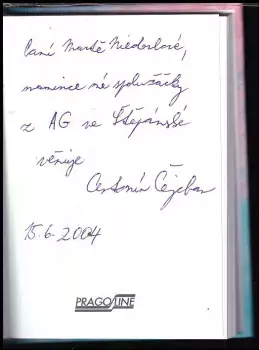 Paní Martě Niedoslové,
mamince mé spolužačky
z AG ve Štěpánské
věnuje
Antonín Čejchan
15.6.2004
PRAGOLINE